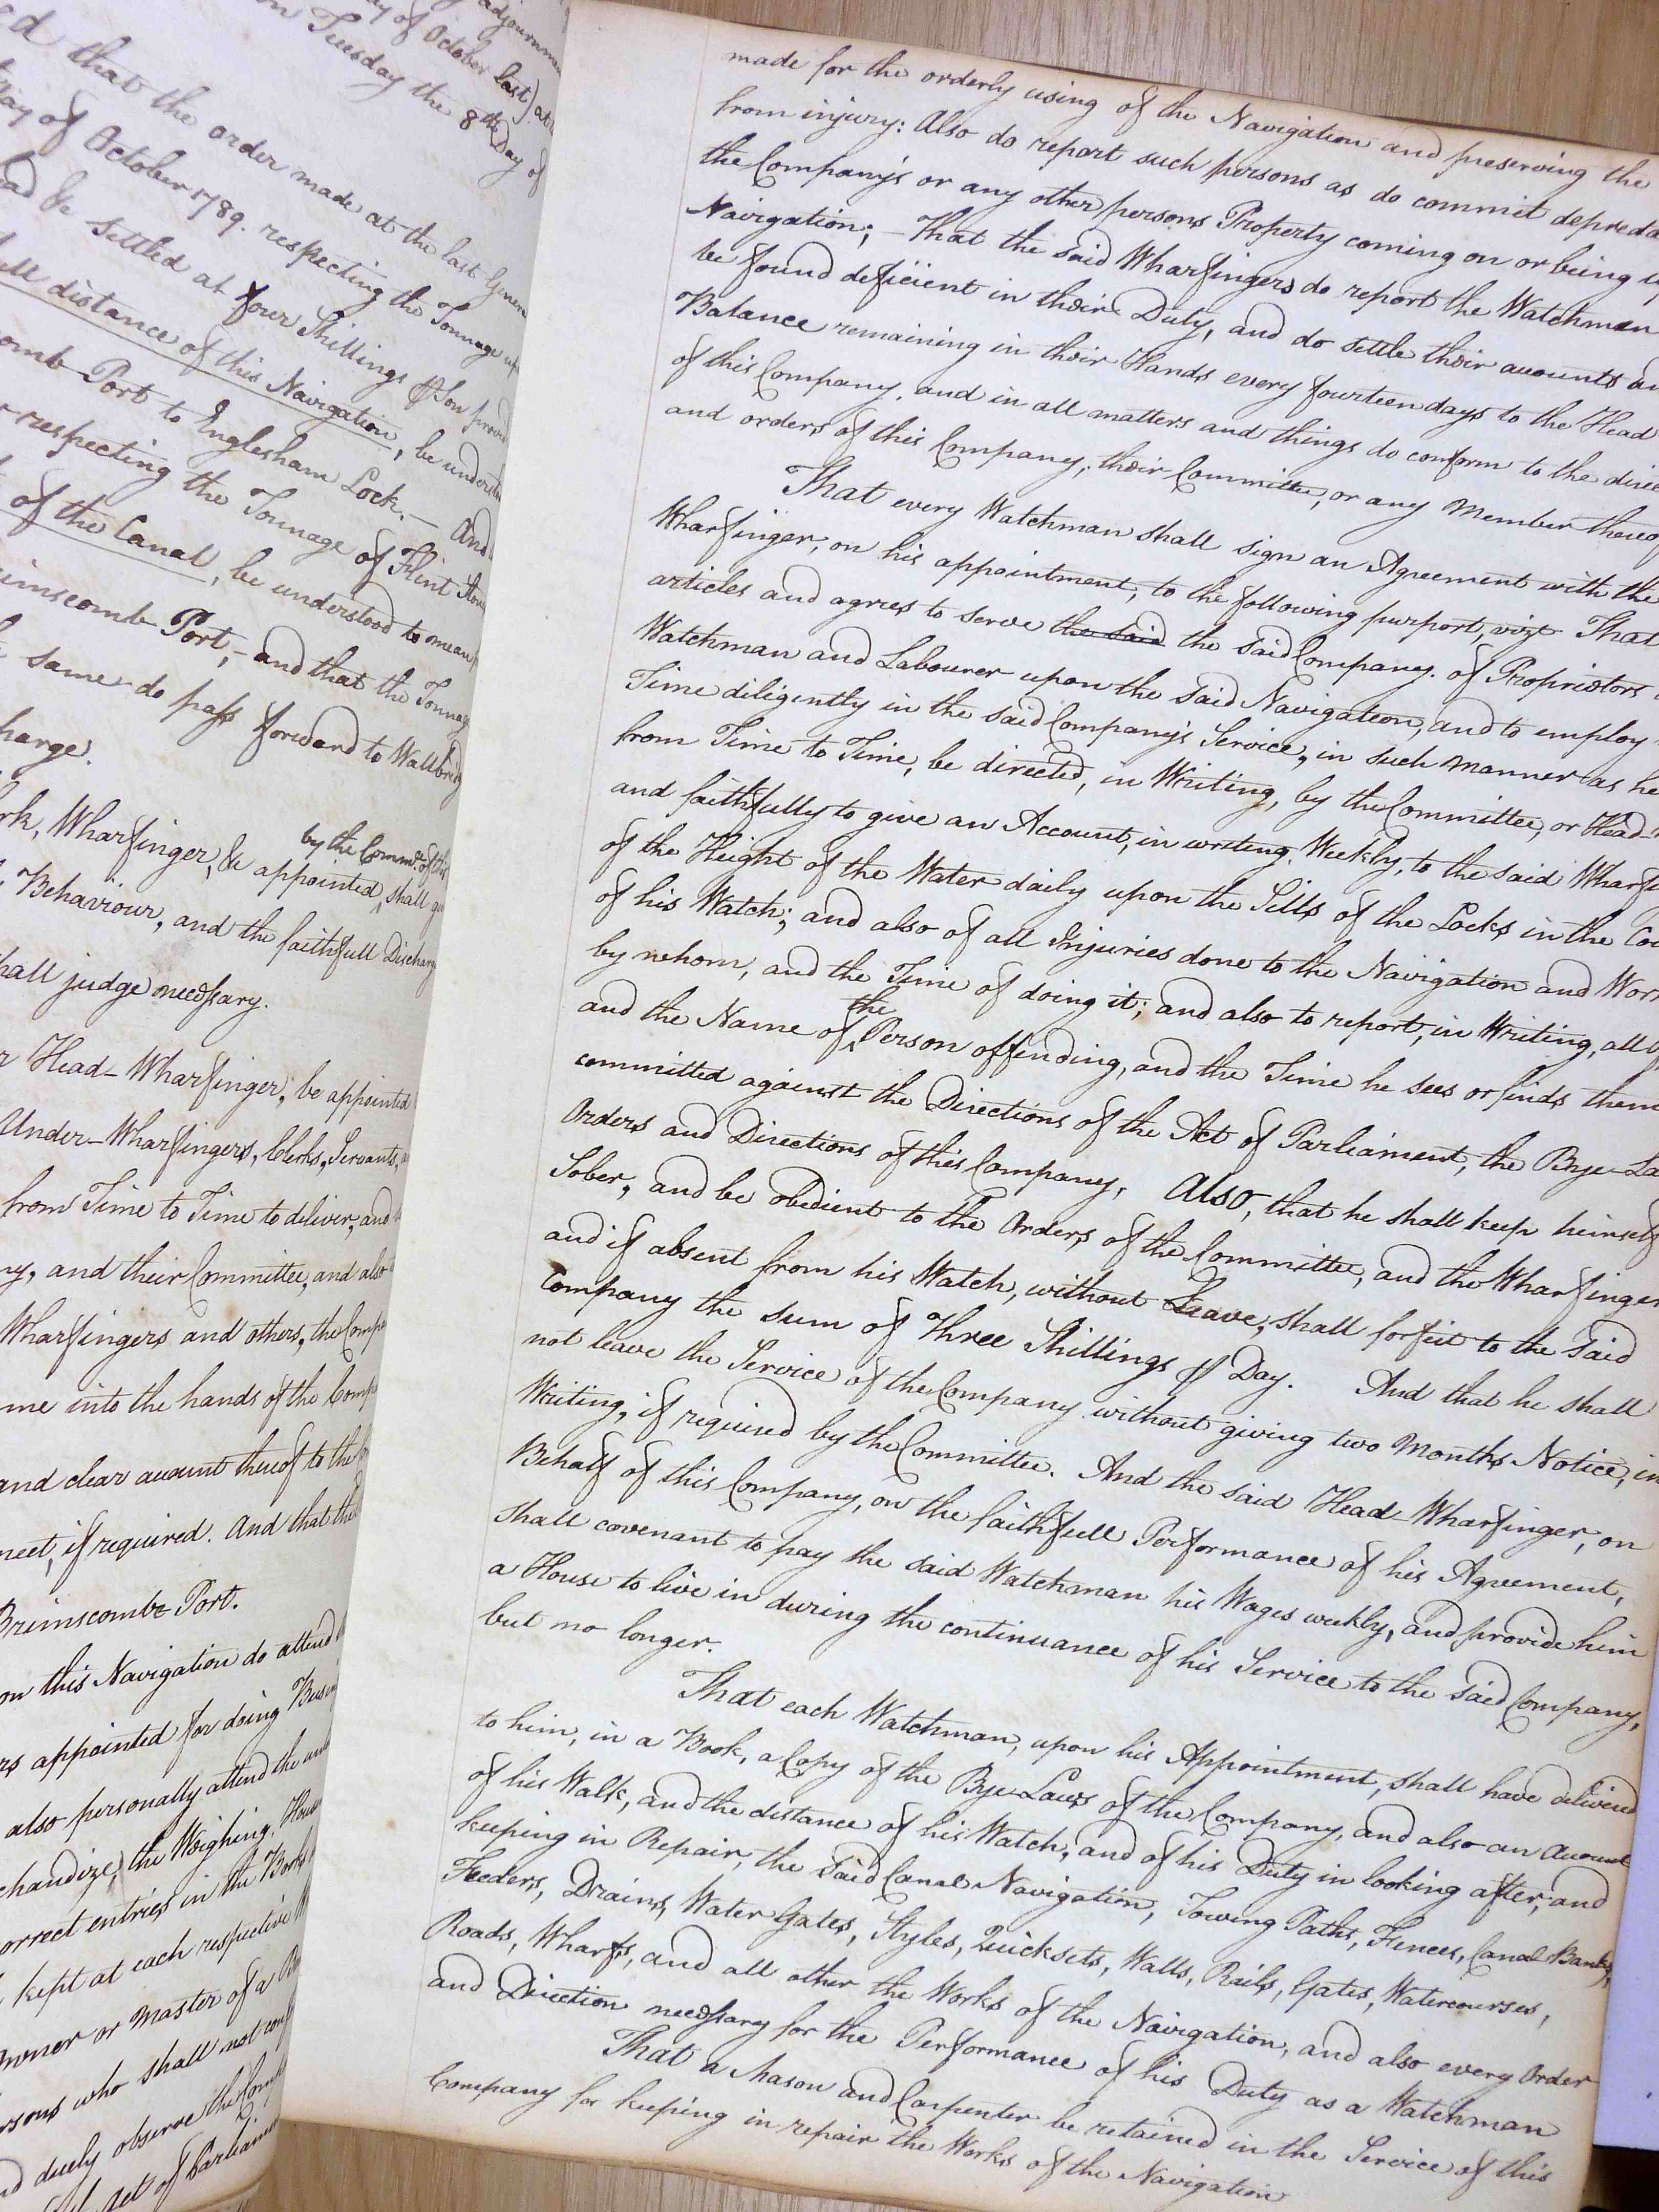 adjournmen
ay of October last) at
n Tuesday the 8th Day of
d that the order made at the last Genera
Day of October 1789. respecting the Tonnage up
ad &c settled at four Shillings ⅌ Ton provid
ull distance of this Navigation, be underst
omb Port to Inglesham Lock. — And
r respecting the Tonnage of Flint Ston
of the Canal, be understood to mean
rimscomb Port, — and that the Tonnag
same do pass forward to Wallbrid
harge.
rk, Wharfinger, &c appointed by the Comme. of this shall g
Behaviour, and the faithfull Discharg
hall judge necessary.
r Head-Wharfinger, be appointed
Under-Wharfingers, Clerks, Servants,
from Time to Time to deliver, and
ny, and their Committee, and also
Wharfingers and others, the Comp
me into the hands of the Comp
and clear account thereof to the
meet, if required. And that the
Brimscombe Port.
on this Navigation do attend
rs appointed for doing Busin
also personally attend the
chandize, the Weighing, Hous
orrect entries in the Books
kept at each respective
Owner or Master of a
rsons who shall not com
nd duely observe the Comp
Act of Parliamen
made for the orderly using of the Navigation and preserving the
from injury: Also do report such persons as do commit depreda
the Company's or any other persons Property coming on or being u
Navigation; — That the said Wharfingers do report the Watchmen
be found deficient in their Duty, and do settle their accounts an
Balance remaining in their Hands every fourteen days to the Head
of this Company, and in all matters and things do conform to the direc
and orders of this Company, their Committee, or any Member thereof
That every Watchman shall sign an Agreement with the
Wharfinger, on his appointment, to the following purport, vizt That
articles and agrees to serve the said the said Company of Proprietors
Watchman and Labourer upon the said Navigation, and to employ
Time diligently in the said Company's Service, in such manner as he
from Time to Time, be directed, in Writing, by the Committee, or Head
and faithfully to give an Account, in writing, Weekly, to the said Wharfi
of the Height of the Water daily upon the Sills of the Locks in the Cou
of his Watch; and also of all Injuries done to the Navigation and Wor
by whom, and the Time of doing it; and also to report, in Writing, all
and the Name of the Person offending, and the Time he sees or finds them
committed against the Directions of the Act of Parliament, the Bye-La
Orders and Directions of this Company, Also, that he shall keep himself
Sober, and be obedient to the Orders of the Committee, and the Wharfinger
and if absent from his Watch, without Leave, shall forfeit to the said
Company the sum of Three Shillings ⅌ Day. And that he shall
not leave the Service of the Company without giving two Months Notice, in
Writing, if required by the Committee. And the said Head-Wharfinger, on
Behalf of this Company, on the faithfull Performance of his Agreement,
shall covenant to pay the said Watchman his Wages weekly, and provide him
a House to live in during the continuance of his Service to the said Company,
but no longer.
That each Watchman, upon his Appointment, shall have delivered
to him, in a Book, a Copy of the Bye-Laws of the Company, and also an Account
of his Walk, and the distance of his Watch, and of his Duty in looking after, and
keeping in Repair, the said Canal Navigation, Towing Paths, Fences, Canal Banks,
Feeders, Drains, Water Gates, Styles, Quicksets, Walls, Rails, Gates, Watercourses,
Roads, Wharfs, and all other the Works of the Navigation, and also every Order
and Direction necessary for the Performance of his Duty as a Watchman
That a Mason and Carpenter be retained in the Service of this
Company for keeping in repair the Works of the Navigation